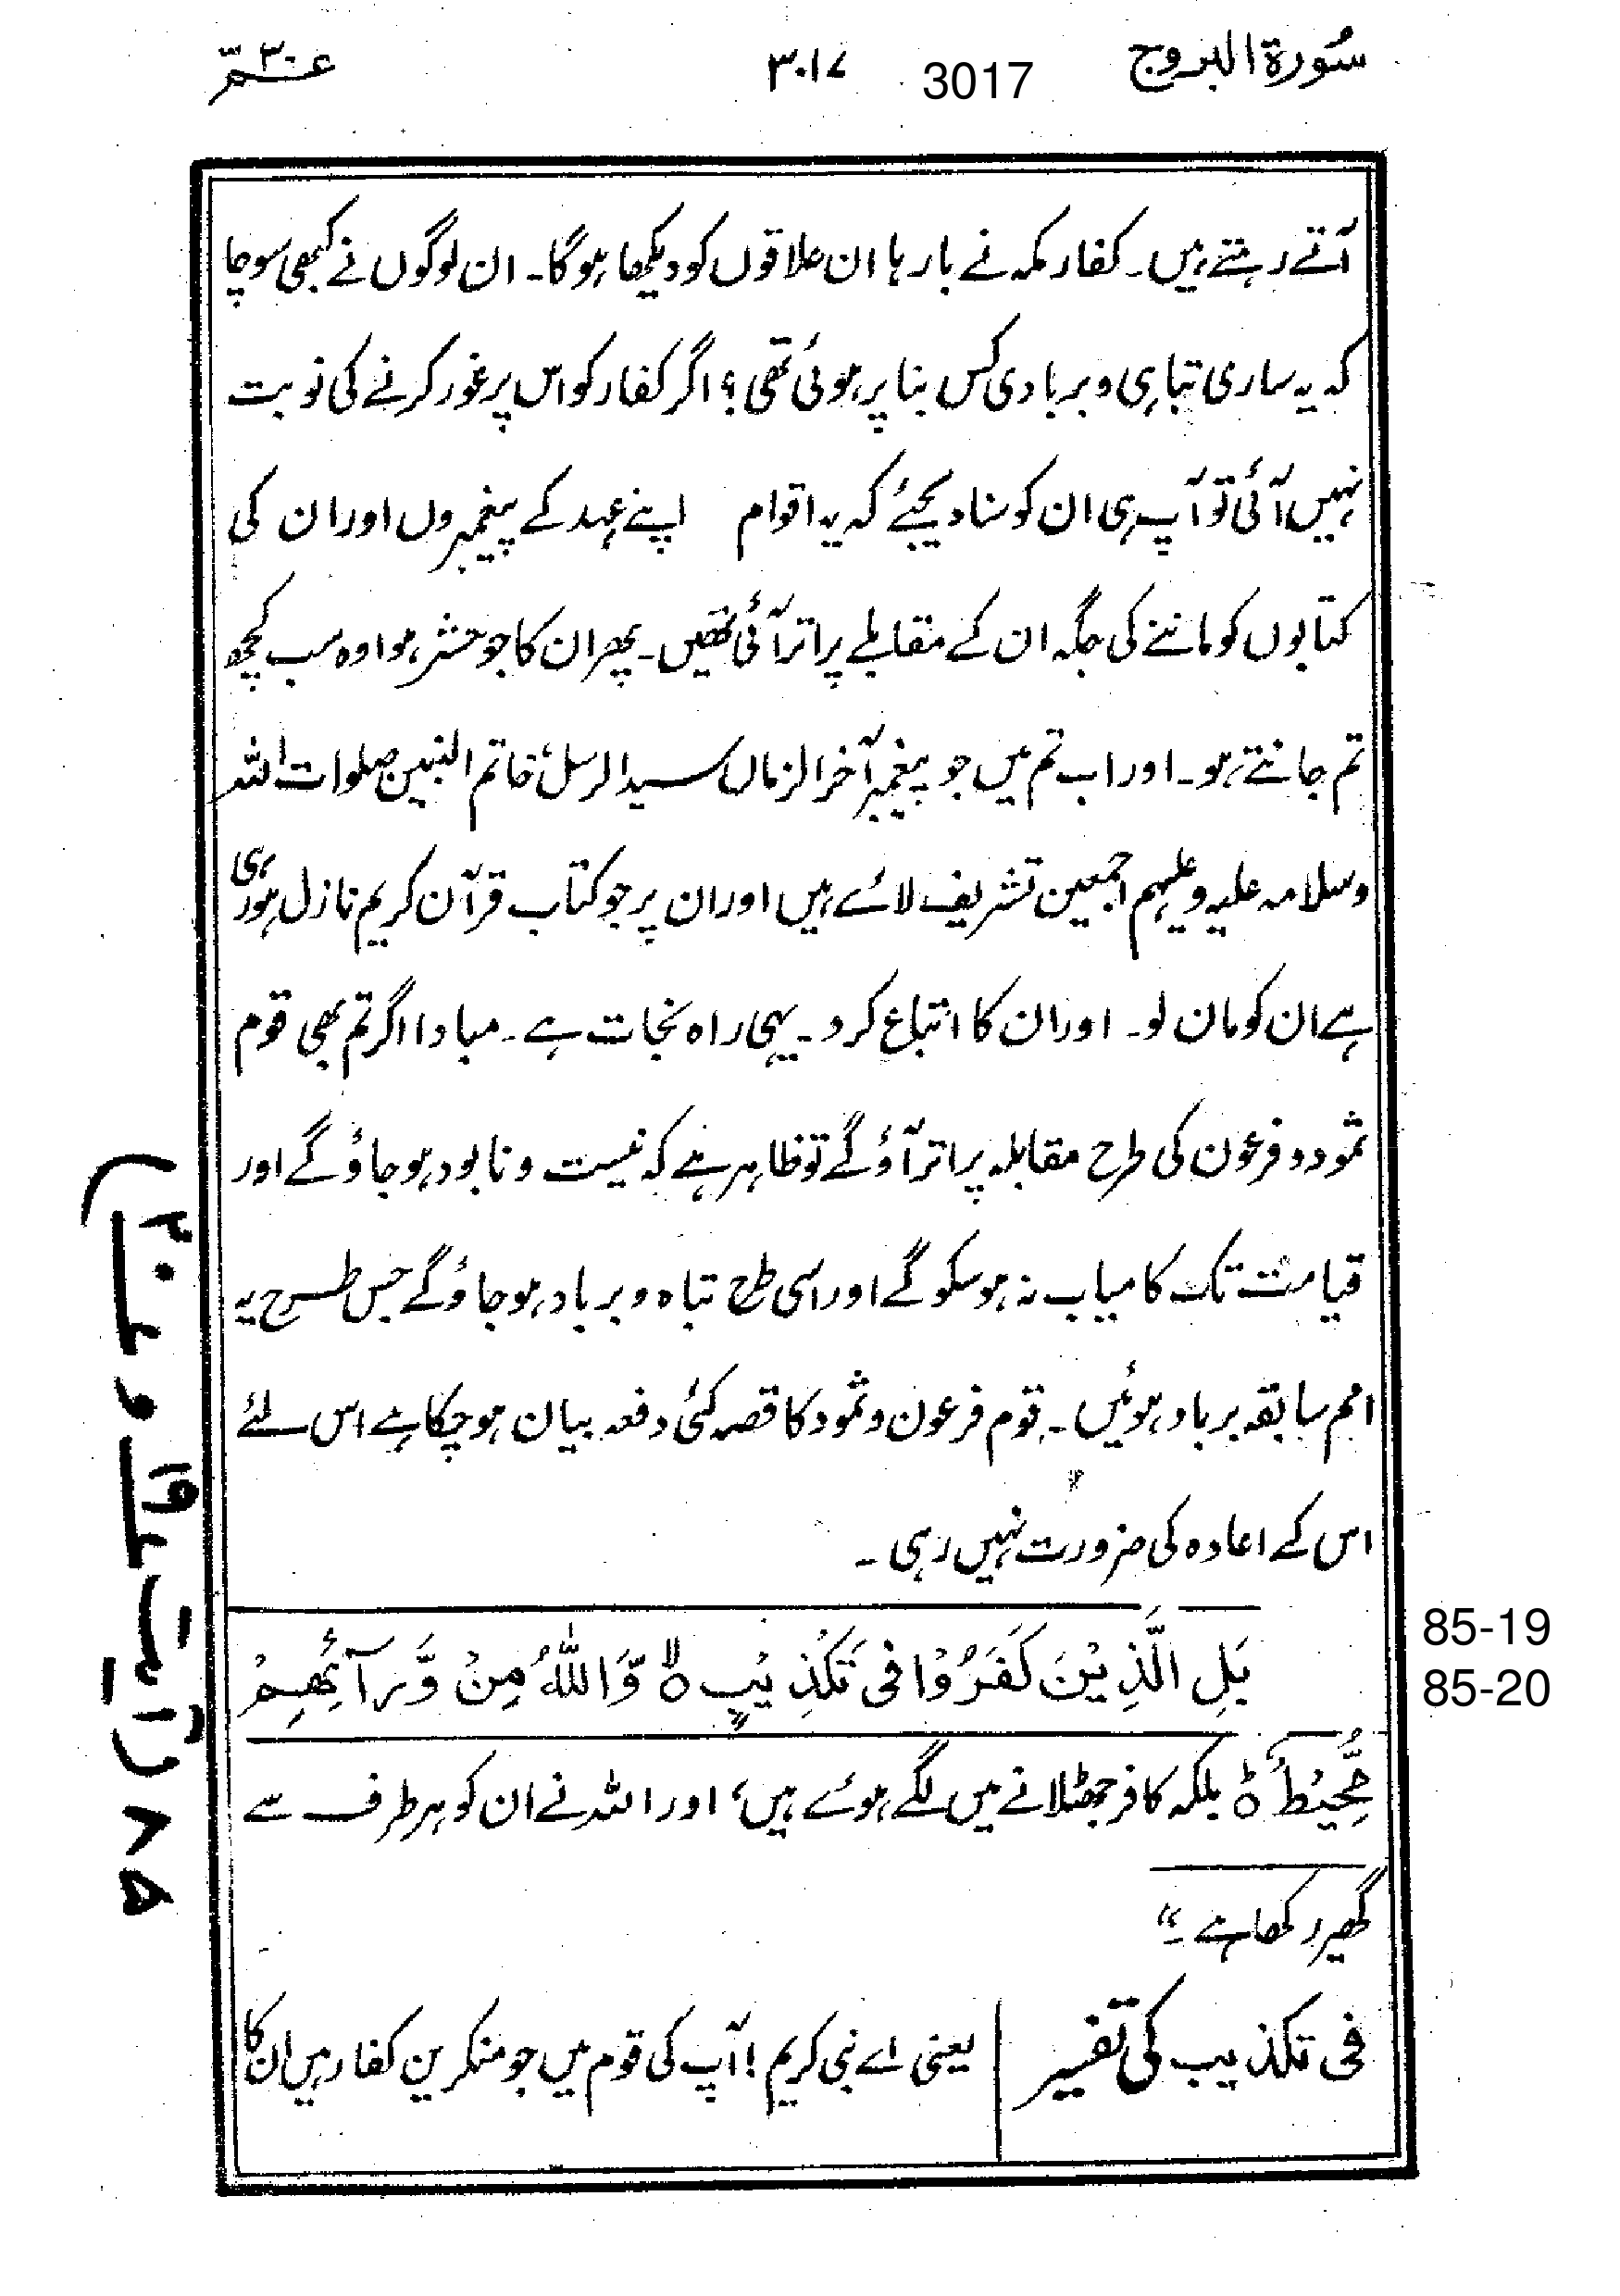 سُورة البروج 3017 ۳۰۱۷ عمّ ۳۰
آتے رہتے ہیں۔ کفار مکہ نے بارہا ان علاقوں کو دیکھا ہوگا۔ ان لوگوں نے کبھی سوچا
کہ یہ ساری تباہی و بربادی کس بنا پر ہوئی تھی؟ اگر کفار کو اس پر غور کرنے کی نوبت
نہیں آئی تو آپ ہی ان کو سنا دیجئے کہ یہ اقوام اپنے عہد کے پیغمبروں اور ان کی
کتابوں کو ماننے کی جگہ ان کے مقابلے پر اتر آئی تھیں۔ پھر ان کا جو حشر ہوا وہ سب کچھ
تم جانتے ہو۔ اور اب تم میں جو پیغمبر آخر الزماں سید الرسلؐ خاتم النبیین صلوات اللہ
وسلامہ علیہ وعلیہم اجمعین تشریف لائے ہیں اور ان پر جو کتاب قرآن کریم نازل ہو رہی
ہے ان کو مان لو۔ اور ان کا اتباع کرو۔ یہی راہ نجات ہے۔ مبادا اگر تم بھی قوم
ثمود و فرعون کی طرح مقابلہ پر اتر آؤ گے تو ظاہر ہے کہ نیست و نابود ہو جاؤ گے اور
قیامت تک کامیاب نہ ہو سکو گے اور اسی طرح تباہ و برباد ہو جاؤ گے جس طرح یہ
امم سابقہ برباد ہوئیں۔ قوم فرعون و ثمود کا قصہ کئی دفعہ بیان ہو چکا ہے اس لئے
اس کے اعادہ کی ضرورت نہیں رہی۔
بَلِ الَّذِيْنَ كَفَرُوْا فِى تَكْذِيْبٍ ۙ وَّاللّٰهُ مِنْ وَّرَآئِهِمْ
85-19
85-20
مُّحِيْطٌ ۚ بلکہ کافر جھٹلانے میں لگے ہوئے ہیں، اور اللہ نے ان کو ہر طرف سے
گھیر رکھا ہے۔"
فی تکذیب کی تفسیر | یعنی اے نبی کریم! آپ کی قوم میں جو منکرین کفار ہیں ان کا
۸۵ (آیت ۱۹ و ۲۰)